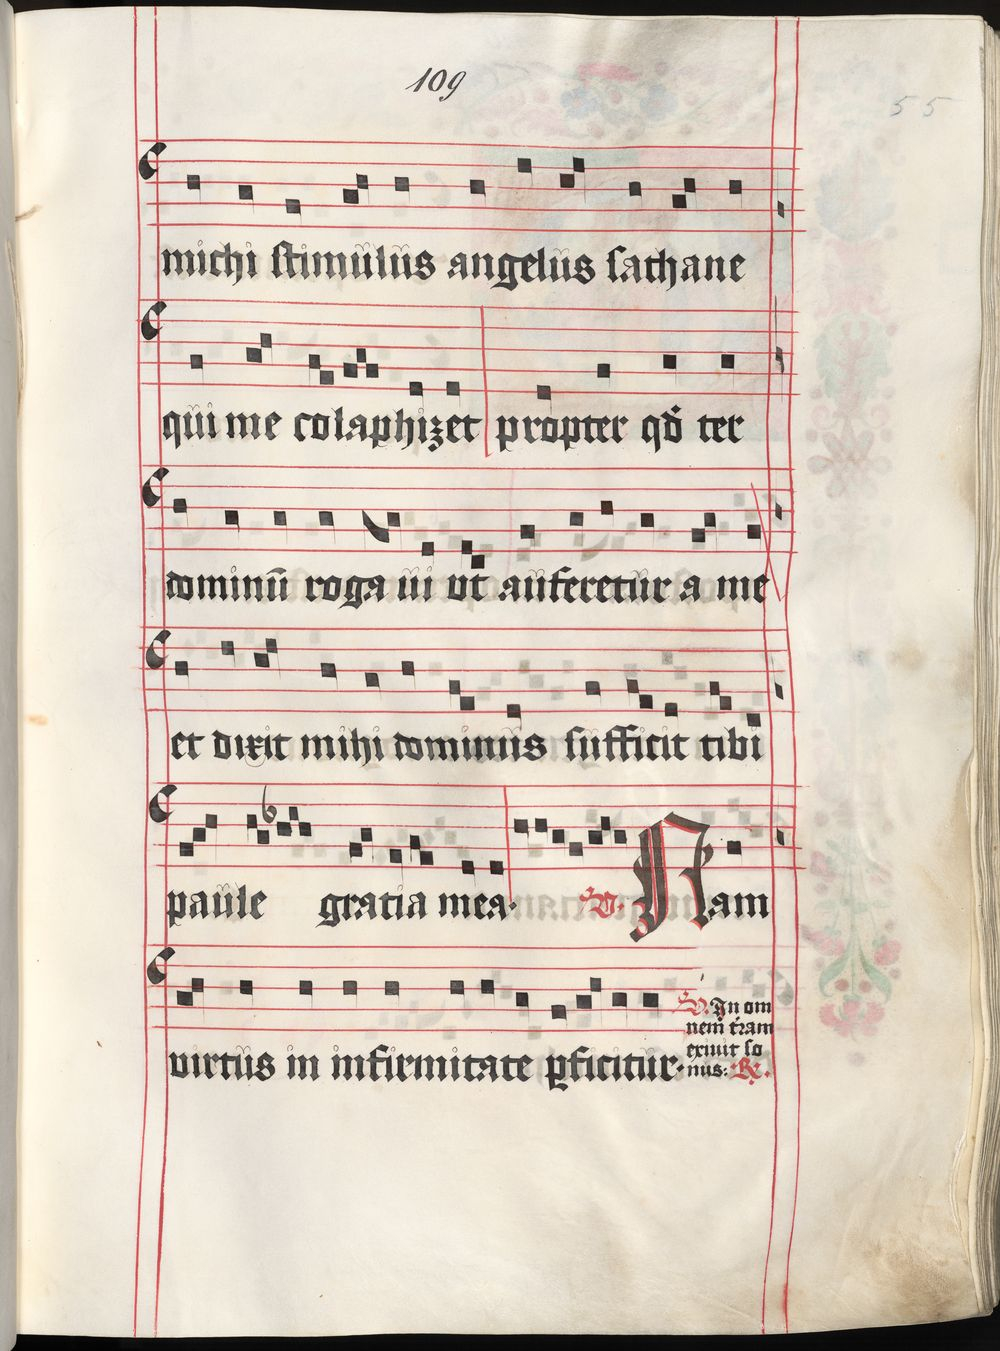 109
55
michi stimulus angelus sathane
qui me colaphizet propter qď ter
dominū roga ui ut auferetur a me
et dixit mihi dominus sufficit tibi
paule gratia mea. V. Nam
virtus in infirmitate ꝑficitur.
V. In om
nem t̄ram
exiuit so
nus: R.